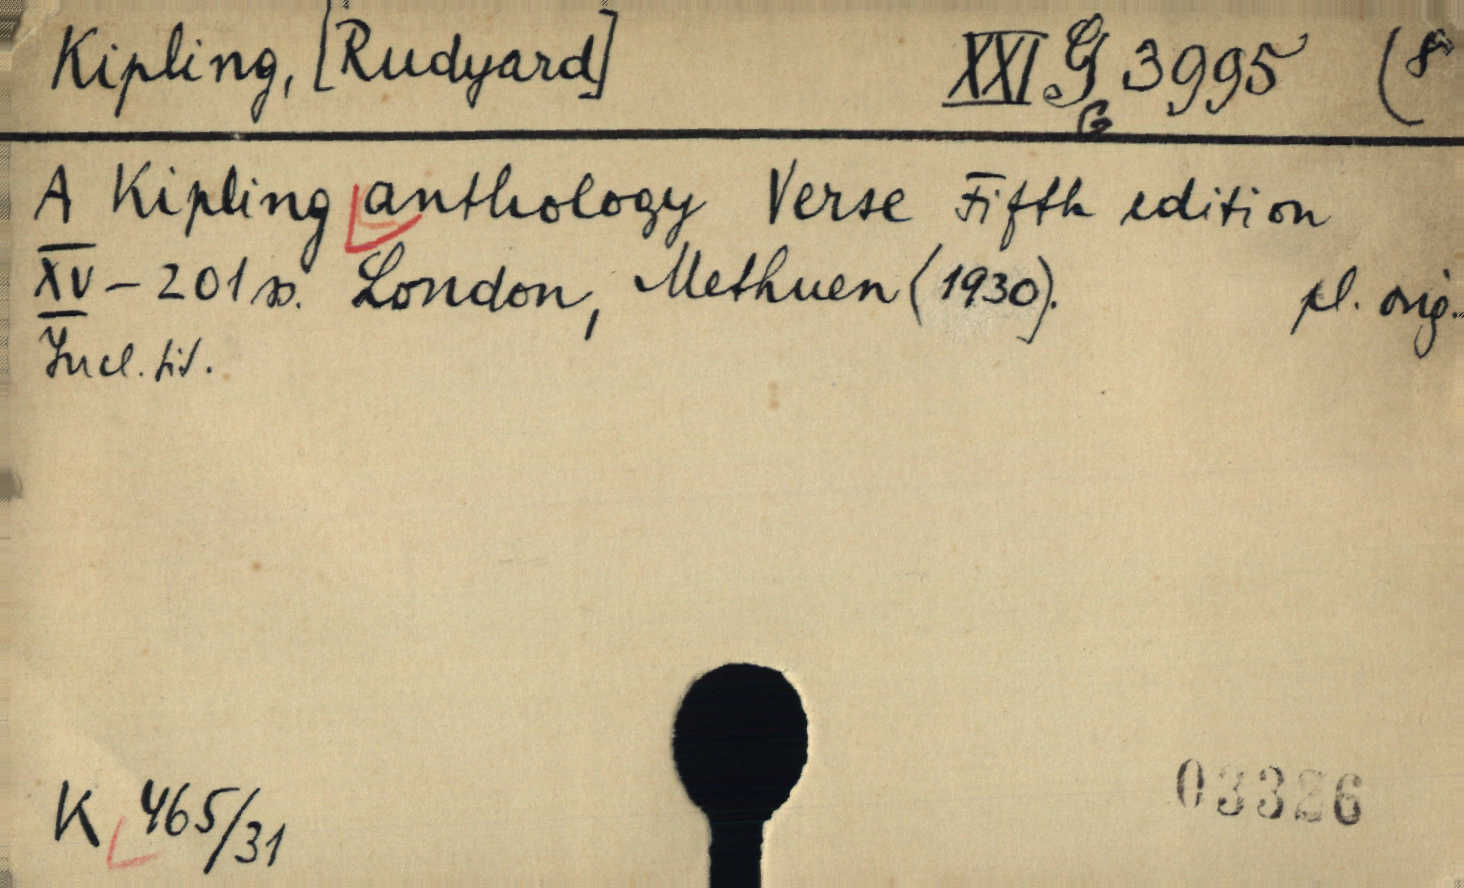 Kipling, [Rudyard] XXI G 3995 (8°
G
A Kipling anthology Verse Fifth edition
XV – 201 s. London, Methuen (1930). pl. orig.
Incl. tit.
K 465/31
03326